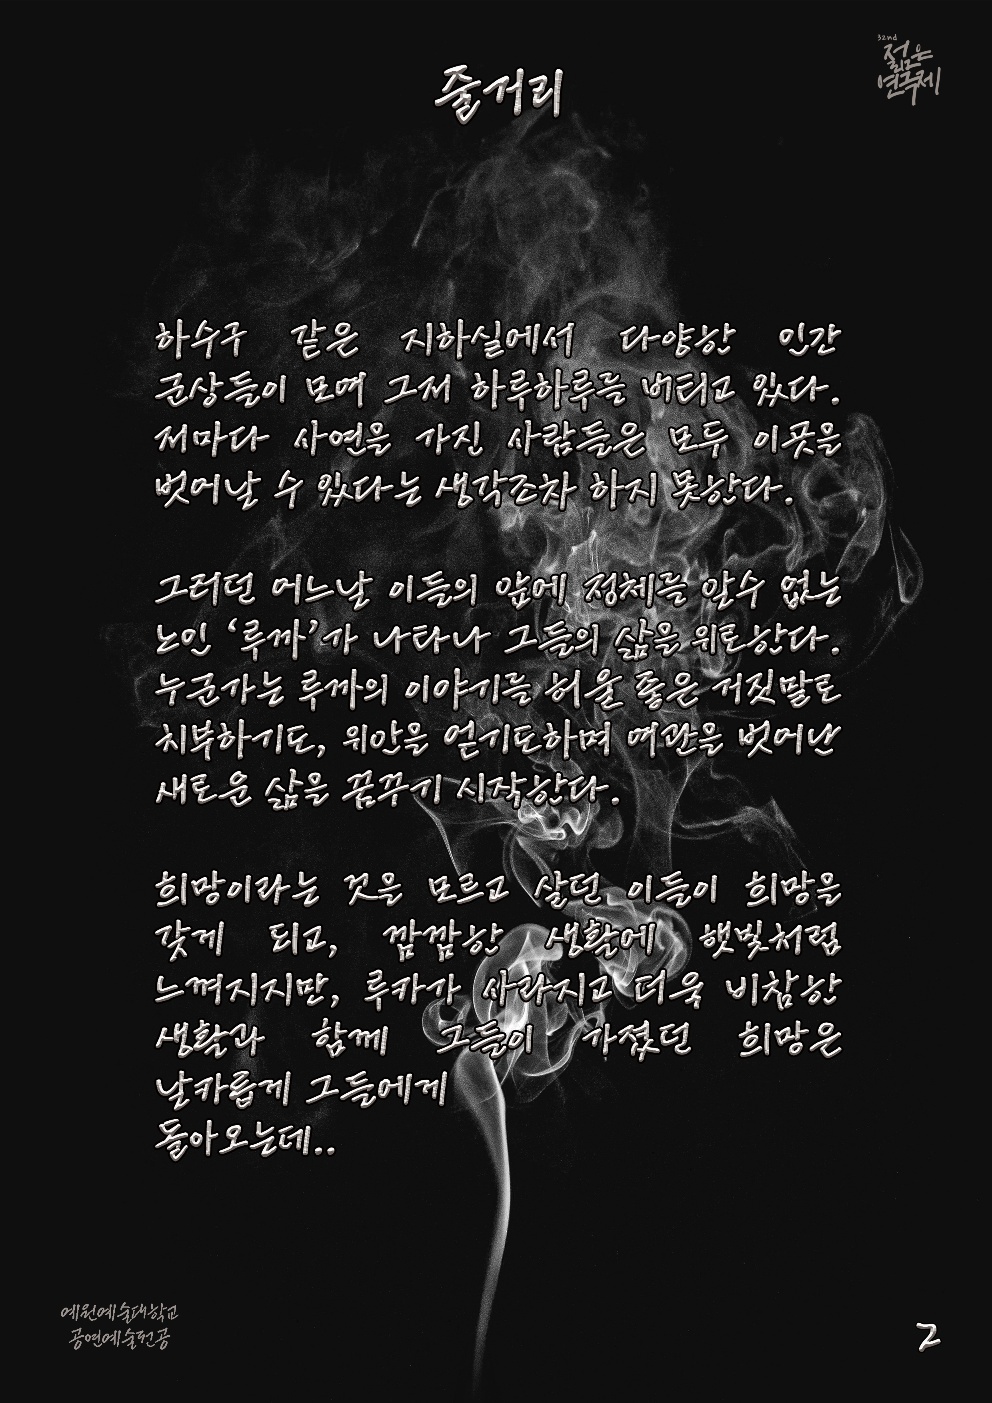 32nd
젊은
연극제
줄거리
하수구 같은 지하실에서 다양한 인간
군상들이 모여 그저 하루하루를 버티고 있다.
저마다 사연을 가진 사람들은 모두 이곳을
벗어날 수 있다는 생각조차 하지 못한다.
그러던 어느날 이들의 앞에 정체를 알수 없는
노인 ‘루까’가 나타나 그들의 삶을 위로한다.
누군가는 루까의 이야기를 허울 좋은 거짓말로
치부하기도, 위안을 얻기도하며 여관을 벗어난
새로운 삶을 꿈꾸기 시작한다.
희망이라는 것을 모르고 살던 이들이 희망을
갖게 되고, 깜깜한 생활에 햇빛처럼
느껴지지만, 루카가 사라지고 더욱 비참한
생활과 함께 그들이 가졌던 희망은
날카롭게 그들에게
돌아오는데..
예원예술대학교
공연예술전공
2